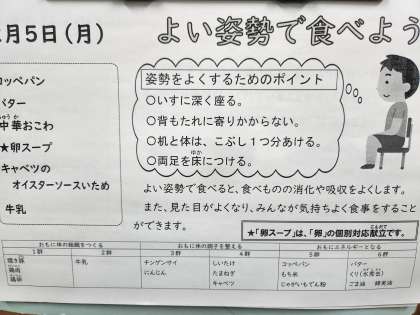 月5日(月)
よい姿勢で食べよう
コッペパン
バター
中華おこわ
★卵スープ
キャベツの
オイスターソースいため
牛乳
姿勢をよくするためのポイント
○いすに深く座る。
○背もたれに寄りかからない。
○机と体は、こぶし1つ分あける。
○両足を床につける。
よい姿勢で食べると、食べものの消化や吸収をよくします。
また、見た目がよくなり、みんなが気持ちよく食事をすること
ができます。
★「卵スープ」は、「卵」の個別対応献立です。
おもに体の組織をつくる おもに体の調子を整える おもにエネルギーとなる
1群 2群 3群 4群 5群 6群
焼き豚 牛乳 チンゲンサイ しいたけ コッペパン バター
鶏肉 にんじん たまねぎ もち米 くり(水煮缶)
鶏卵 キャベツ じゃがいもでん粉 ごま油